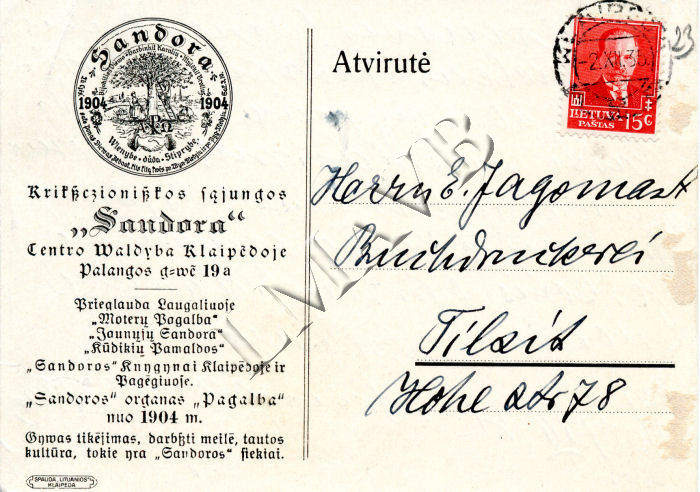 Sandora
1904 1904
Α ☧ Ω
Wienybe • důda • Stiprybe
Krikßczionißkos sąjungos
„Sandora“
Centro Waldyba Klaipėdoje
Palangos g-wė 19a
Prieglauda Laugaliuoje
„Moterų Pagalba“
„Jaunųjų Sandora“
„Kūdikių Pamaldos“
„Sandoros“ Knygynai Klaipėdoje ir
Pagėgiuose.
„Sandoros“ organas „Pagalba“
nuo 1904 m.
Gywas tikėjimas, darbßti meilė, tautos
kultūra, tokie yra „Sandoros“ siekiai.
SPAUDA „LITUANIOS“
KLAIPĖDA
Atvirutė
-2.XII.35
LIETUVOS
PAŠTAS 15 C
23
Herrn E. Jagomast
Buchdruckerei
Tilsit
Hohe Str 78
LMAVB